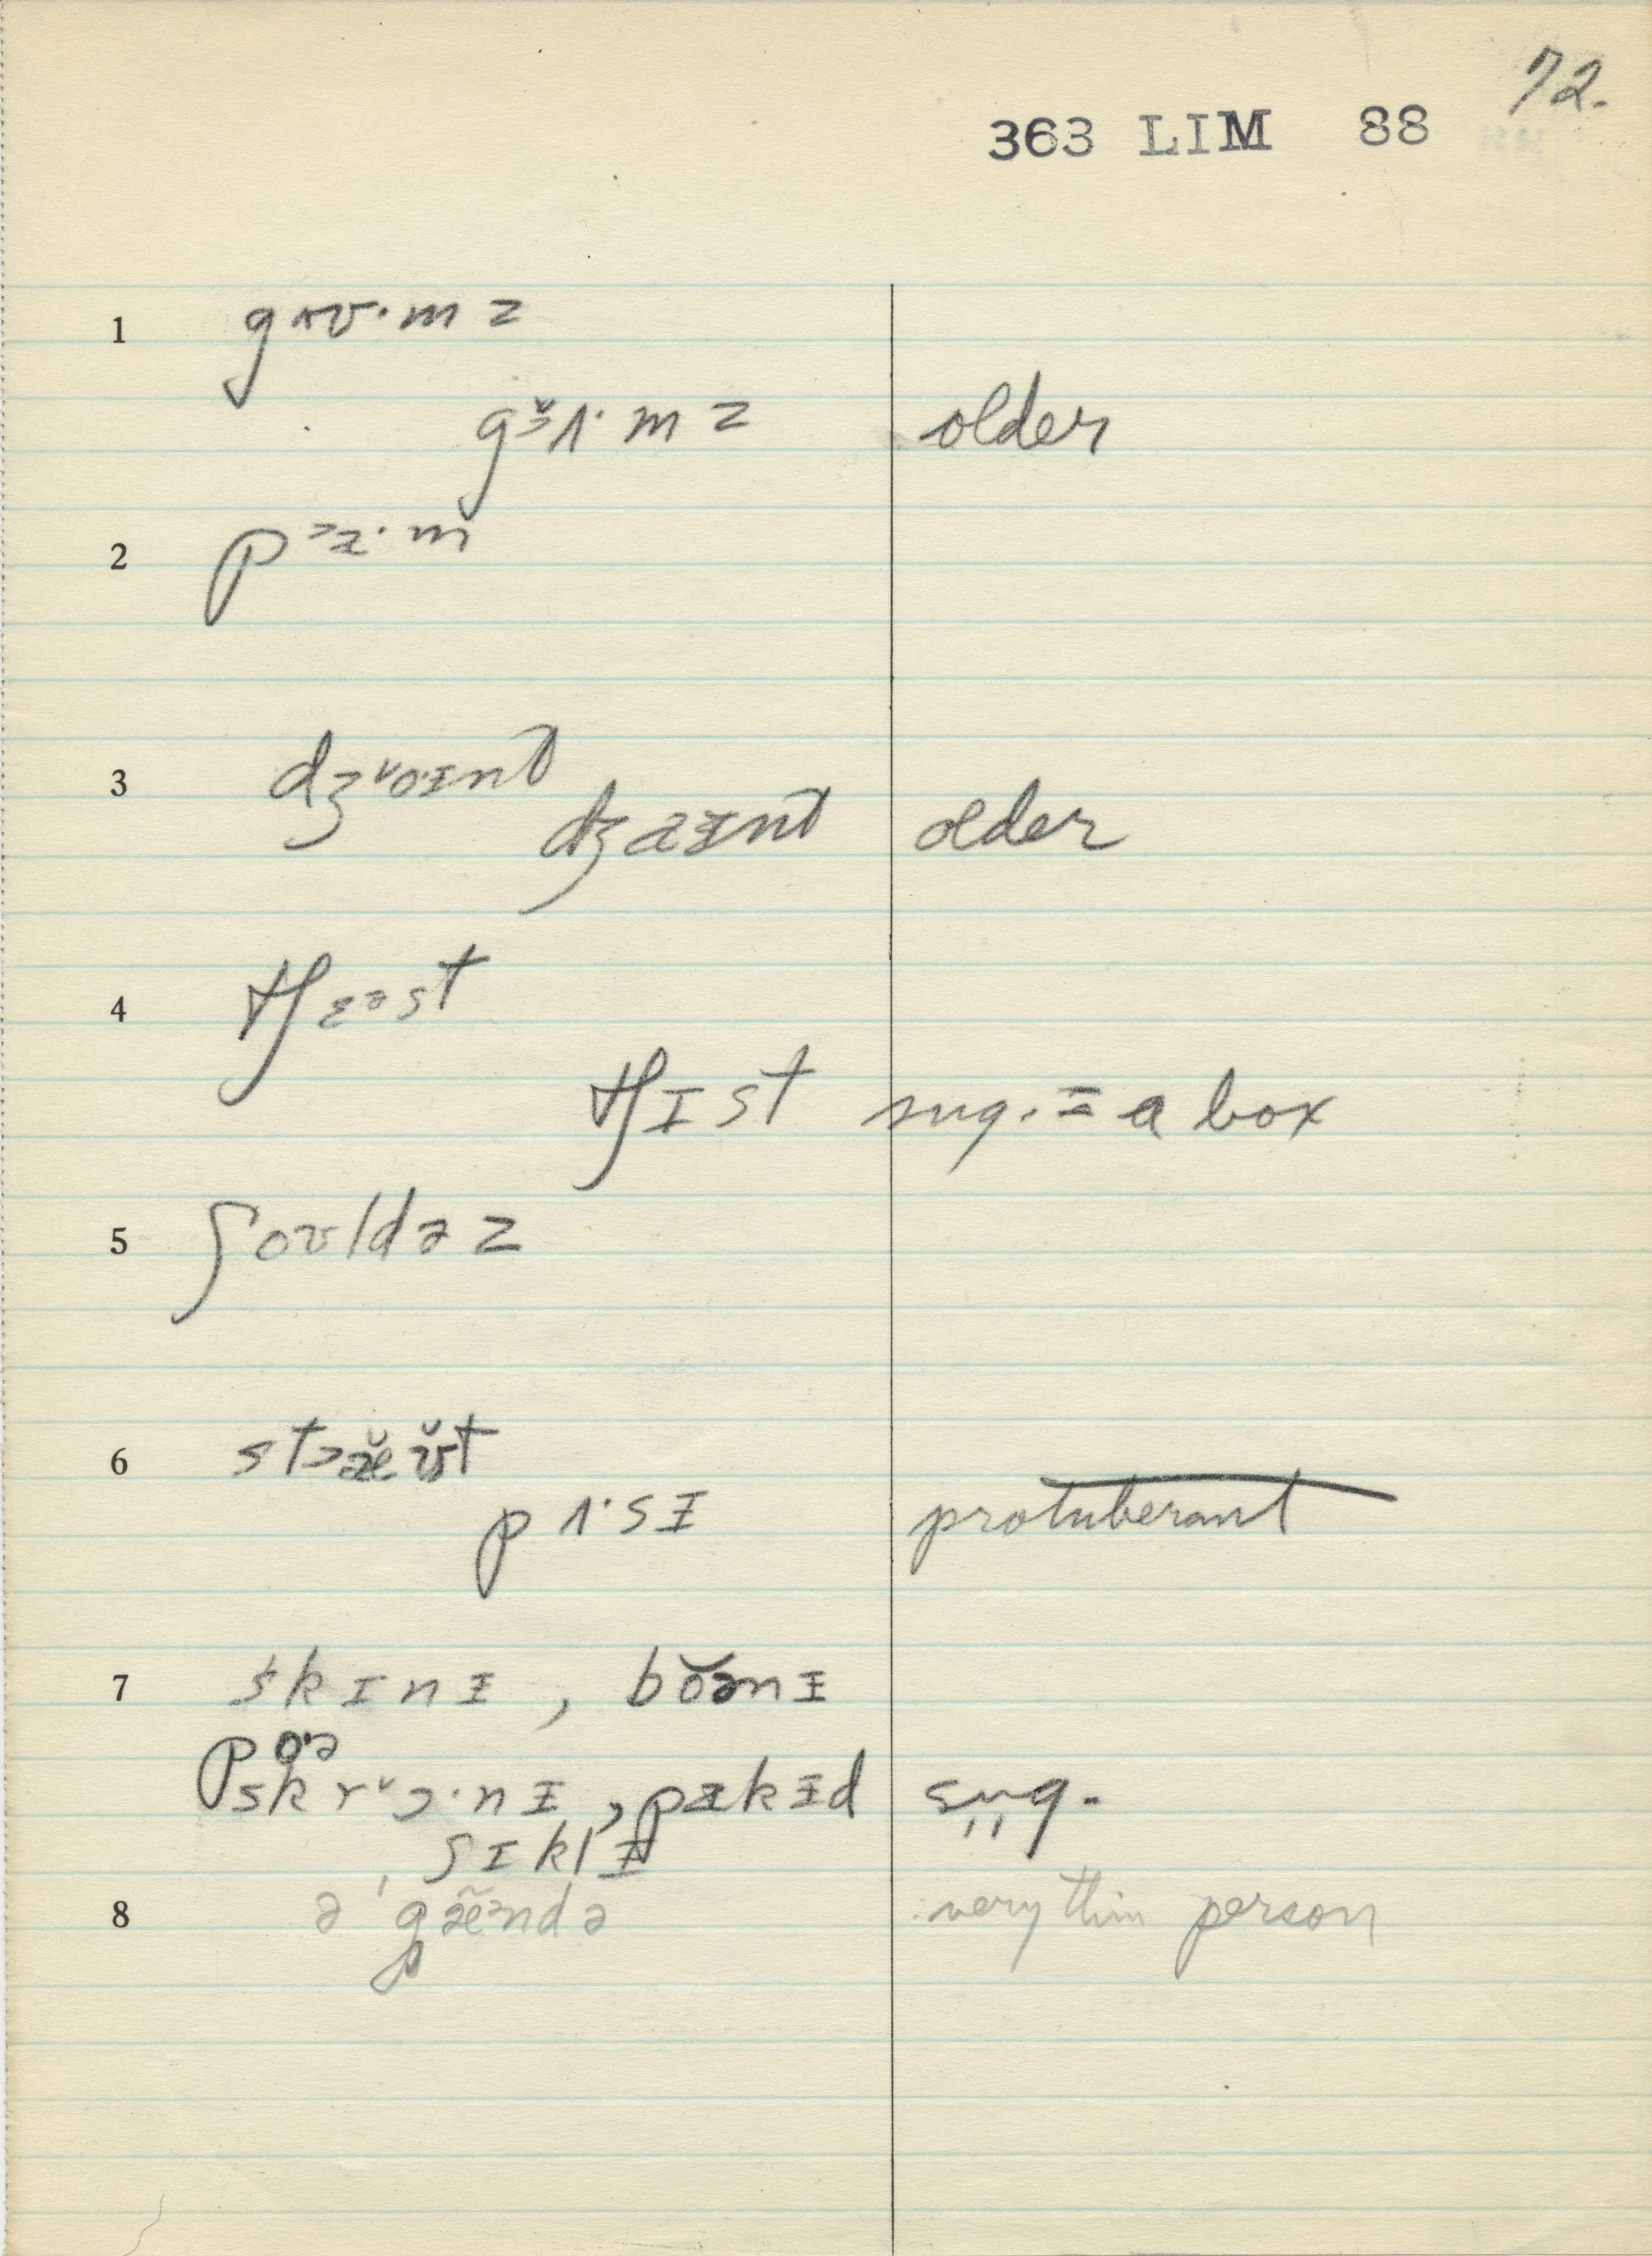 72.
363 LIM 88
1 gʌʊ·mz
gɜ̆ʌ·mz older
2 pᵊæ·m
3 dʒᵛɒ·ᵻnt̑
dʒaᵻnt̑ older
4 tʃɛəst
tʃɪst sug. = a box
5 ʃoʊldəz
6 stɔæ̆ʊ̆t
pʌ·sᵻ protuberant
7 skɪnᵻ, bŏənᵻ
pɒ·ə
skrᵛɔ·nᵻ, pækᵻd sug.
sɪklᵻ
8 ə ˈgæ̃ᵊndə very thin person